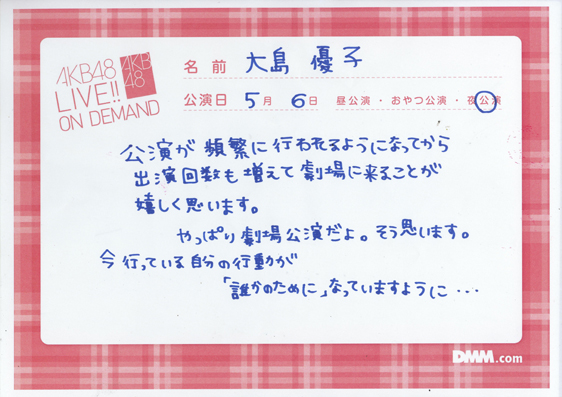 AKB48
LIVE!!
ON DEMAND
AKB
48
名前 大島 優子
公演日 5月 6日 昼公演・おやつ公演・夜公演
公演が 頻繁に行われるようになってから
出演回数も増えて劇場に来ることが
嬉しく思います。
やっぱり劇場公演だよ。そう思います。
今行っている自分の行動が
「誰かのために」なっていますように・・・
DMM.com